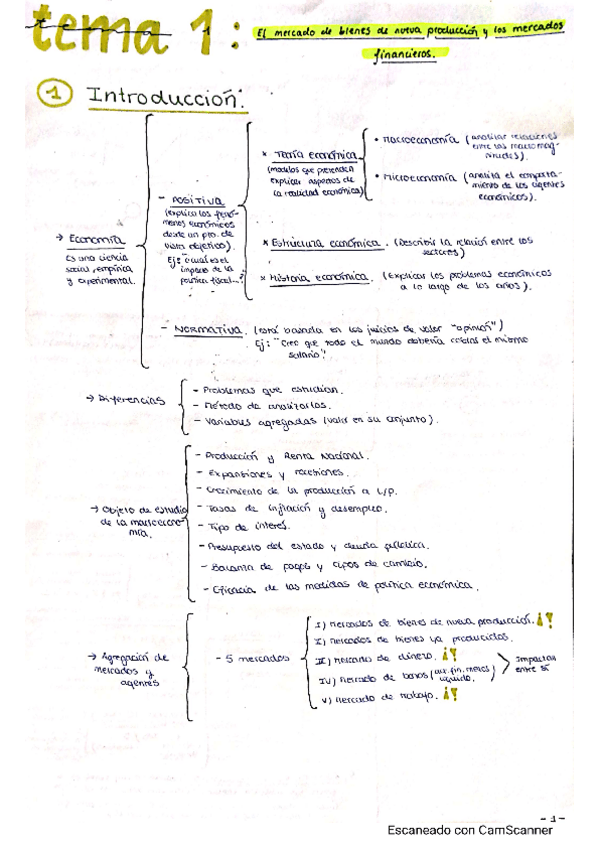 tema 1: El mercado de bienes de nueva producción y los mercados
financieros.
1 Introducción:
→ Economía
Es una ciencia
social, empírica
y experimental.
- POSITIVA
(explica los fenó-
menos económicos
desde un pto. de
vista objetivo).
Ej: ¿cuál es el
impacto de la
política fiscal...?
* Teoría económica
(modelos que pretenden
explicar aspectos de
la realidad económica)
• Macroeconomía (analizar relaciones
entre las macromag-
nitudes).
• Microeconomía (analiza el comporta-
miento de los agentes
económicos).
* Estructura económica. (Describir la relación entre los
sectores)
* Historia económica. (Explicar los problemas económicos
a lo largo de los años).
- NORMATIVA. (está basada en los juicios de valor "opinión")
Ej: "Creo que todo el mundo debería cobrar el mismo
salario".
→ Diferencias
- Problemas que estudian.
- Método de analizarlos.
- Variables agregadas (valor en su conjunto).
→ Objeto de estudio
de la macroecono-
mía.
- Producción y Renta Nacional.
- Expansiones y recesiones.
- Crecimiento de la producción a L/P.
- Tasas de inflación y desempleo.
- Tipo de interés.
- Presupuesto del estado y deuda pública.
- Balanza de pagos y tipos de cambio.
- Eficacia de las medidas de política económica.
→ Agregación de
mercados y
agentes
- 5 mercados
I) Mercados de bienes de nueva producción. ¡!
II) Mercados de bienes ya producidos.
III) Mercado de dinero. ¡!
IV) Mercado de bonos (act. fin. menos
líquido).
V) Mercado de trabajo. ¡!
Impactan
entre sí
- 1 -
Escaneado con CamScanner